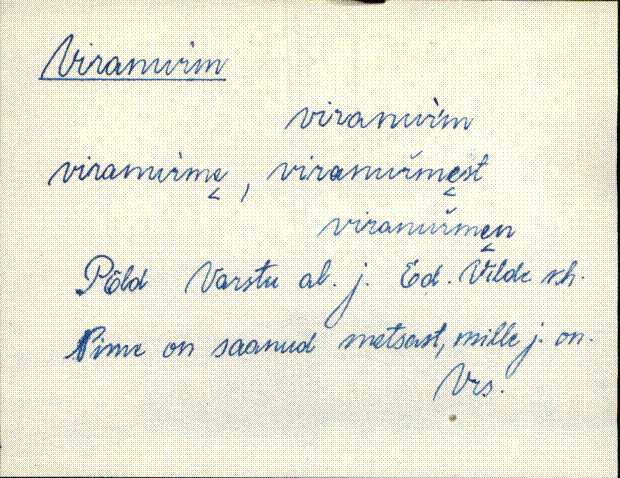 Viranurm
viranuŕm
viranurme̬, viranuŕme̬st
viranuŕme̬n
Põld Varstu al. j. Ed. Vilde kh.
Nime on saanud metsast, mille j. on.
Vrs.